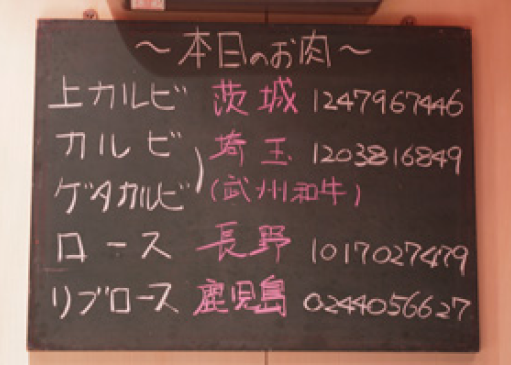 ～本日のお肉～
上カルビ 茨城 1247967446
カルビ 埼玉 1203816849
ゲタカルビ (武州和牛)
ロース 長野 1017027479
リブロース 鹿児島 0244056627